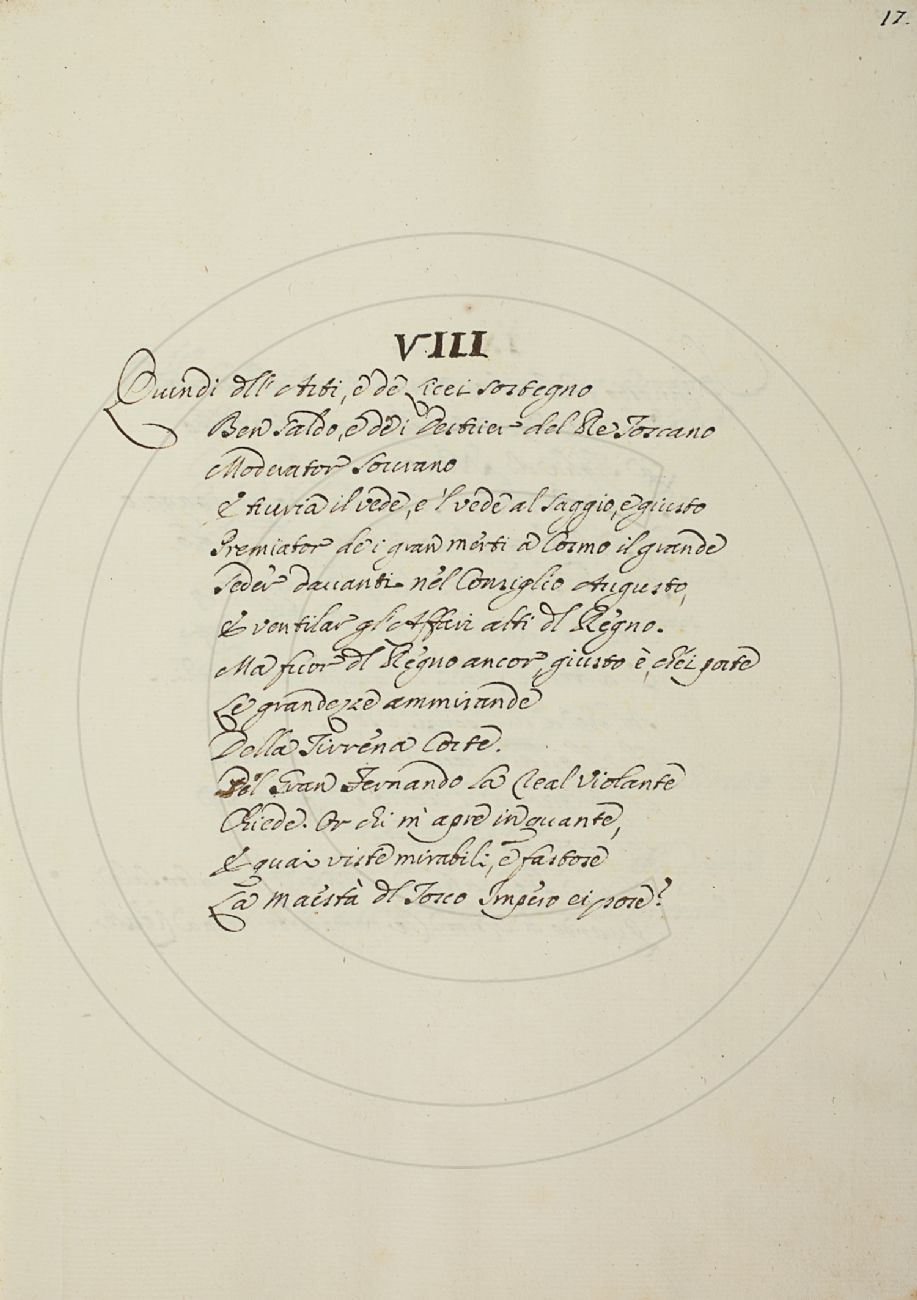 17.
VIII
Quindi dll' Arti, e de Licei sostegno
Ben saldo, e de i Destrier del Re Toscano
Moderator sourano
Etruria il vede, e 'l vede al saggio, e giusto
Premiator de i gran merti a Cosmo il grande
Seder dauanti nel Consiglio Augusto,
E ventilar gl' Affari alti dl Regno.
Ma fuor dl Regno ancor, giusto è, ch'ei porte
Le grandezze ammirande
Della Tirrena Corte.
Pel Gran Fernando la Real Violante
Chiede. Or chi m' apre in quante,
E quai viste mirabili, e fastose
La maestà dl Tosco Impero ei pose?